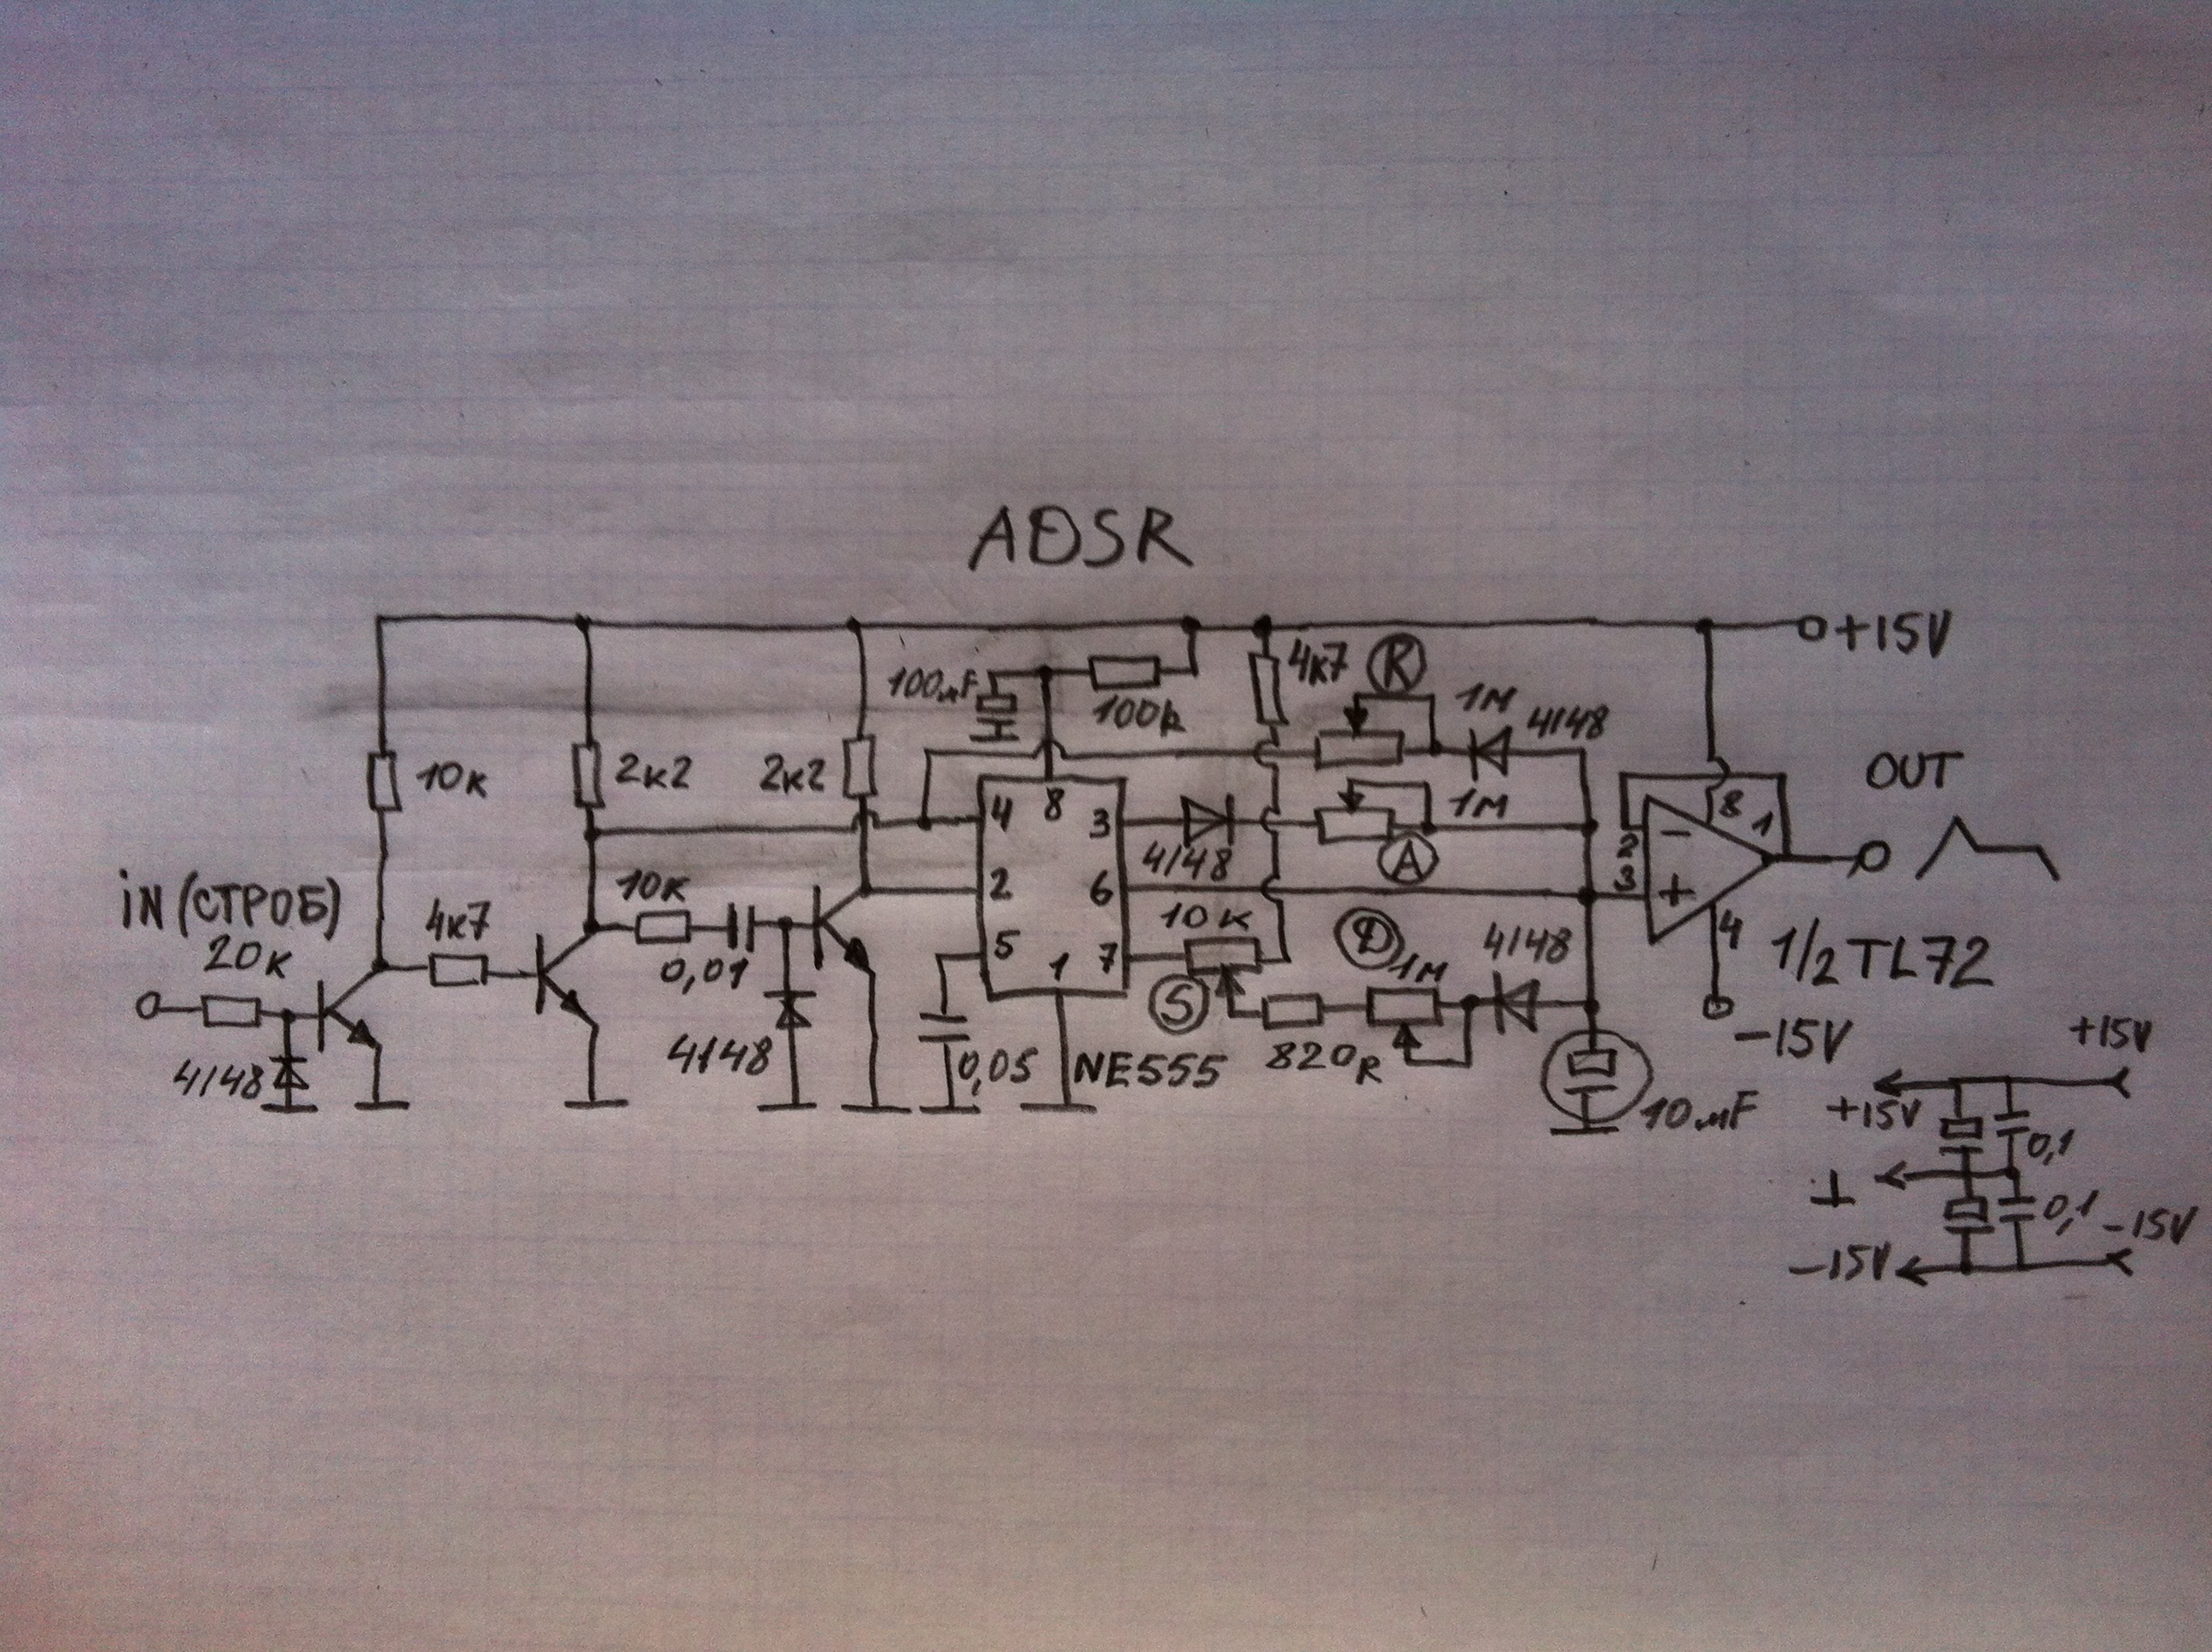 ADSR
+15V
100мF
100k
4к7
R
1M
4148
10к
2к2
2к2
OUT
4
8
3
1M
8
1
4148
A
2
3
iN (СТРОБ)
20к
4к7
10к
0,01
2
6
10к
D
1M
4148
5
1
7
S
4
1/2 TL72
-15V
4148
4148
0,05
NE555
820R
10мF
+15V
+15V
0,1
0,1
-15V
-15V